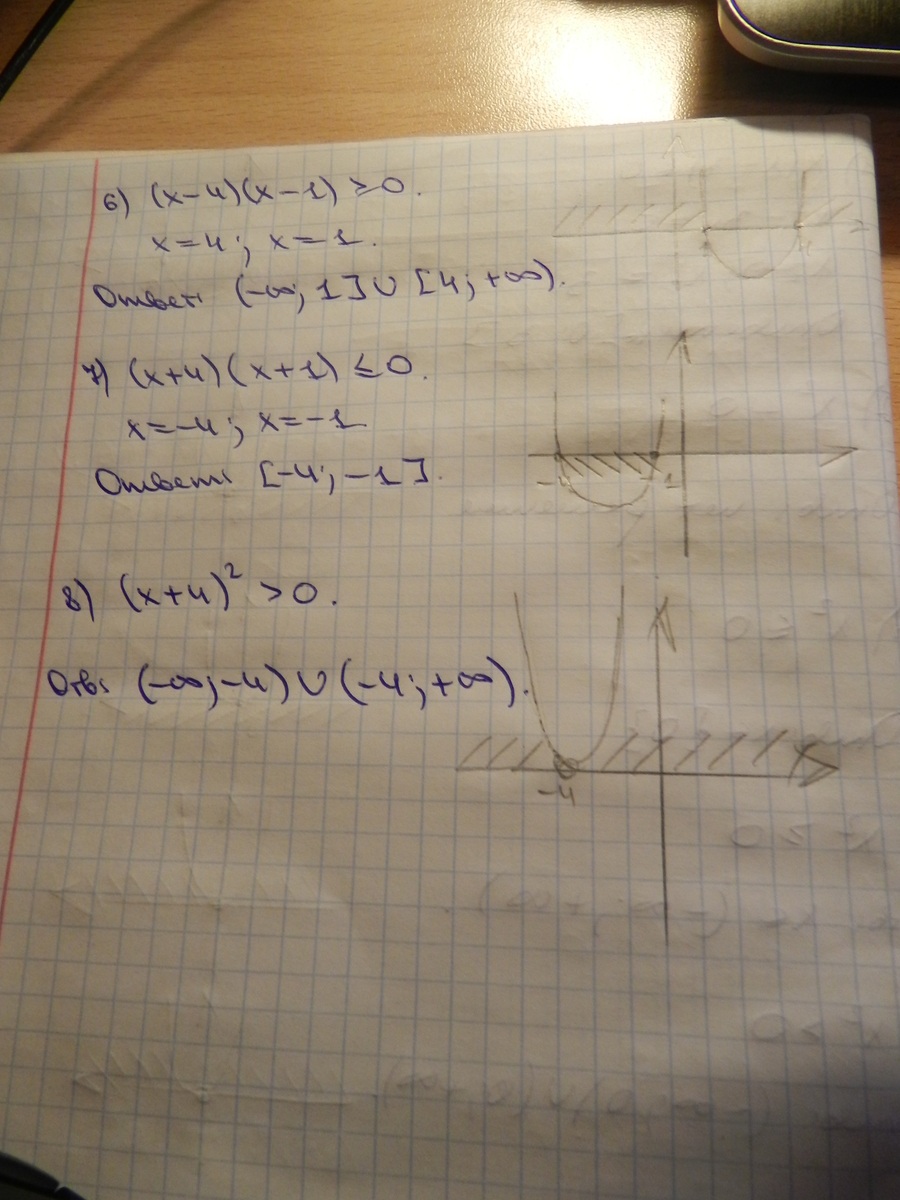 6) (x-4)(x-1) ≥ 0.
x=4; x=1.
Ответ: (-∞; 1] ∪ [4; +∞).
7) (x+4)(x+1) ≤ 0.
x=-4; x=-1
Ответ: [-4; -1].
8) (x+4)² > 0.
Отв: (-∞; -4) ∪ (-4; +∞).
-4